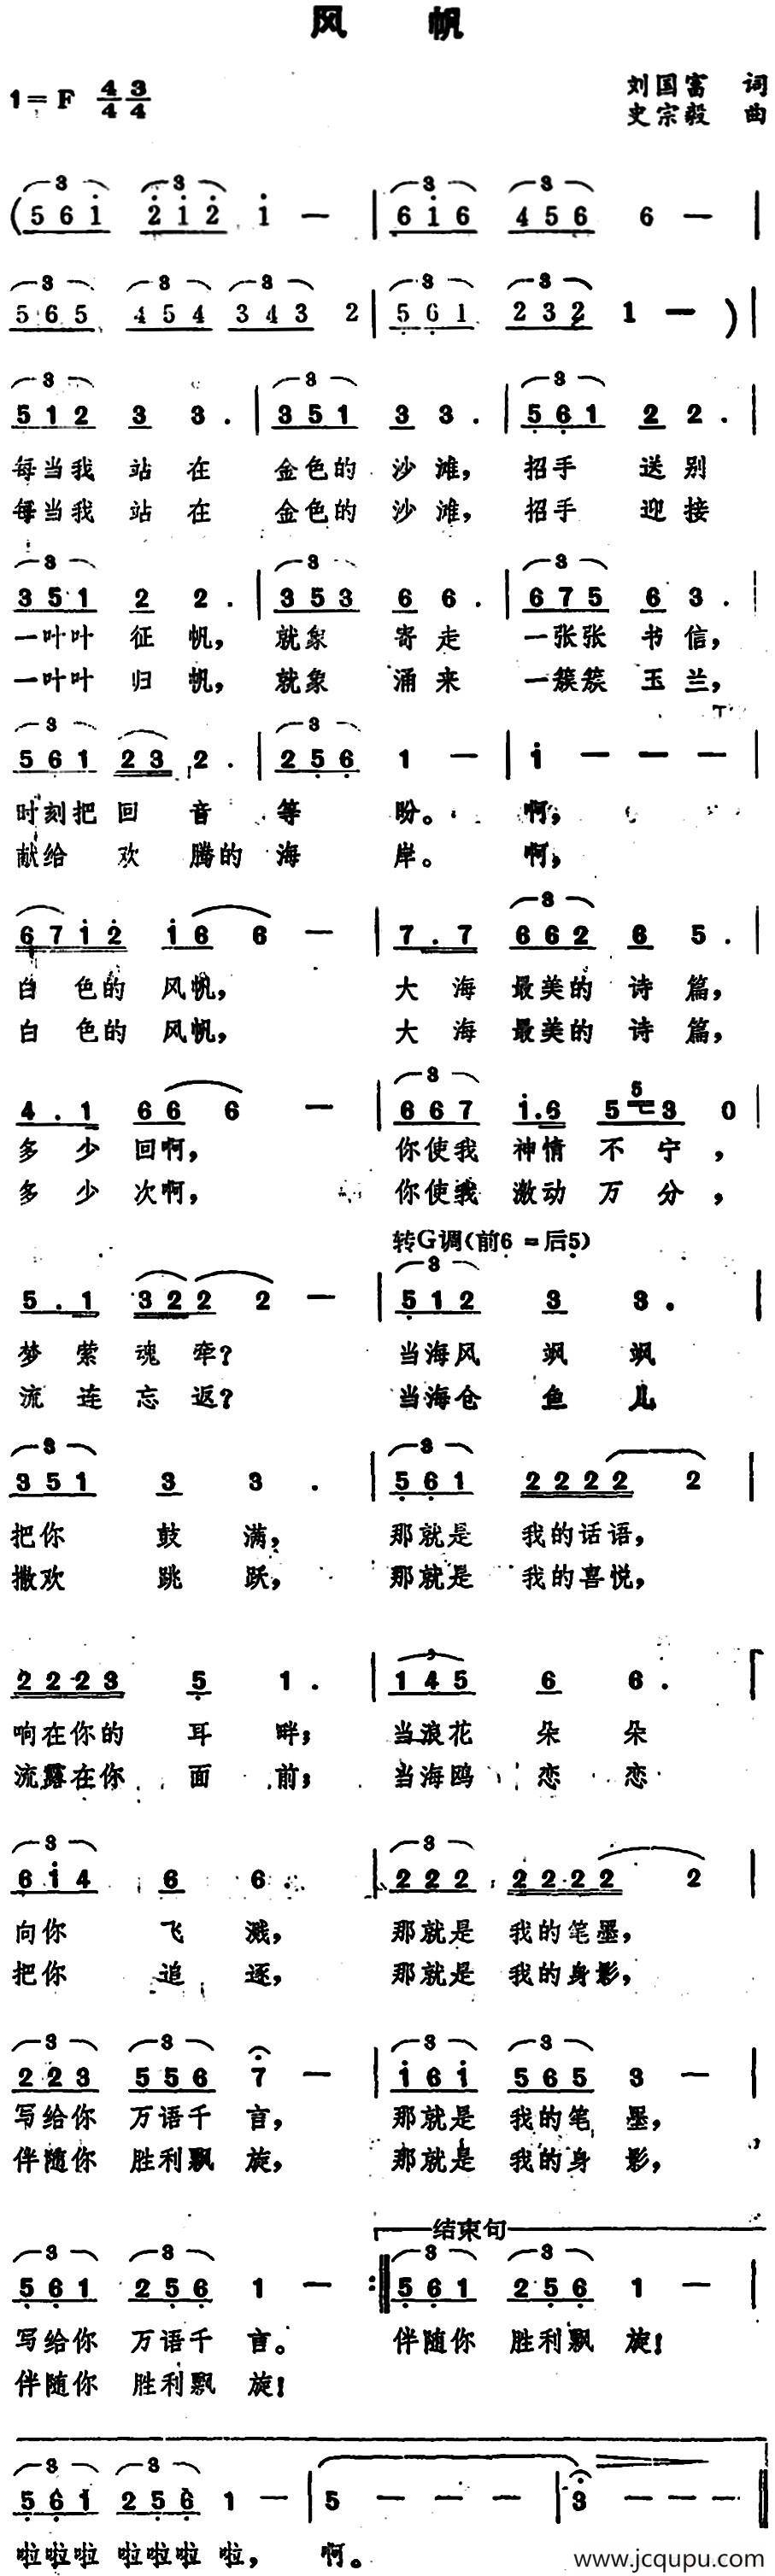 风 帆
1=F 4/4 3/4
刘国富 词
史宗毅 曲
(5 6 i 2 i 2 i — | 6 i 6 4 5 6 6 — |
5 6 5 4 5 4 3 4 3 2 | 5 6 1 2 3 2 1 — )|
5 1 2 3 3 . | 3 5 1 3 3 . | 5 6 1 2 2 . |
每当我 站 在 金色的 沙 滩， 招手 送 别
每当我 站 在 金色的 沙 滩， 招手 迎 接
3 5 1 2 2 . | 3 5 3 6 6 . | 6 7 5 6 3 . |
一叶叶 征 帆， 就象 寄 走 一张张 书 信，
一叶叶 归 帆， 就象 涌 来 一簇簇 玉 兰，
5 6 1 2 3 2 . | 2 5 6 1 — | i — — — |
时刻把 回 音 等 盼。 啊，
献给 欢 腾的 海 岸。 啊，
6 7 i 2 i 6 6 — | 7 . 7 6 6 2 6 5 . |
白 色的 风帆， 大 海 最美的 诗 篇，
白 色的 风帆， 大 海 最美的 诗 篇，
4 . 1 6 6 6 — | 6 6 7 i . 6 5 5 3 0 |
多 少 回啊， 你使我 神情 不 宁，
多 少 次啊， 你使我 激动 万 分，
转G调(前6 =后5)
5 . 1 3 2 2 2 — | 5 1 2 3 3 . |
梦 萦 魂 牵？ 当海风 飒 飒
流 连 忘 返？ 当海仓 鱼 儿
3 5 1 3 3 . | 5 6 1 2 2 2 2 2 |
把你 鼓 满， 那就是 我的话语，
撒欢 跳 跃， 那就是 我的喜悦，
2 2 2 3 5 1 . | 1 4 5 6 6 .
响在你的 耳 畔； 当浪花 朵 朵
流露在你 面 前； 当海鸥 恋 恋
6 i 4 6 6 . | 2 2 2 2 2 2 2 2 |
向你 飞 溅， 那就是 我的笔墨，
把你 追 逐， 那就是 我的身影，
2 2 3 5 5 6 7 — | i 6 i 5 6 5 3 — |
写给你 万语千 言， 那就是 我的笔 墨，
伴随你 胜利飘 旋， 那就是 我的身 影，
结束句
5 6 1 2 5 6 1 — :‖ 5 6 1 2 5 6 1 — |
写给你 万语千 言。 伴随你 胜利飘 旋！
伴随你 胜利飘 旋！
5 6 1 2 5 6 1 — | 5 — — — | 3 — — — ‖
啦啦啦 啦啦啦 啦， 啊。
www.jcqupu.com